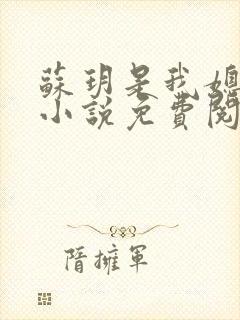 蘇玥是我媳
小說免費閱
隋擁軍